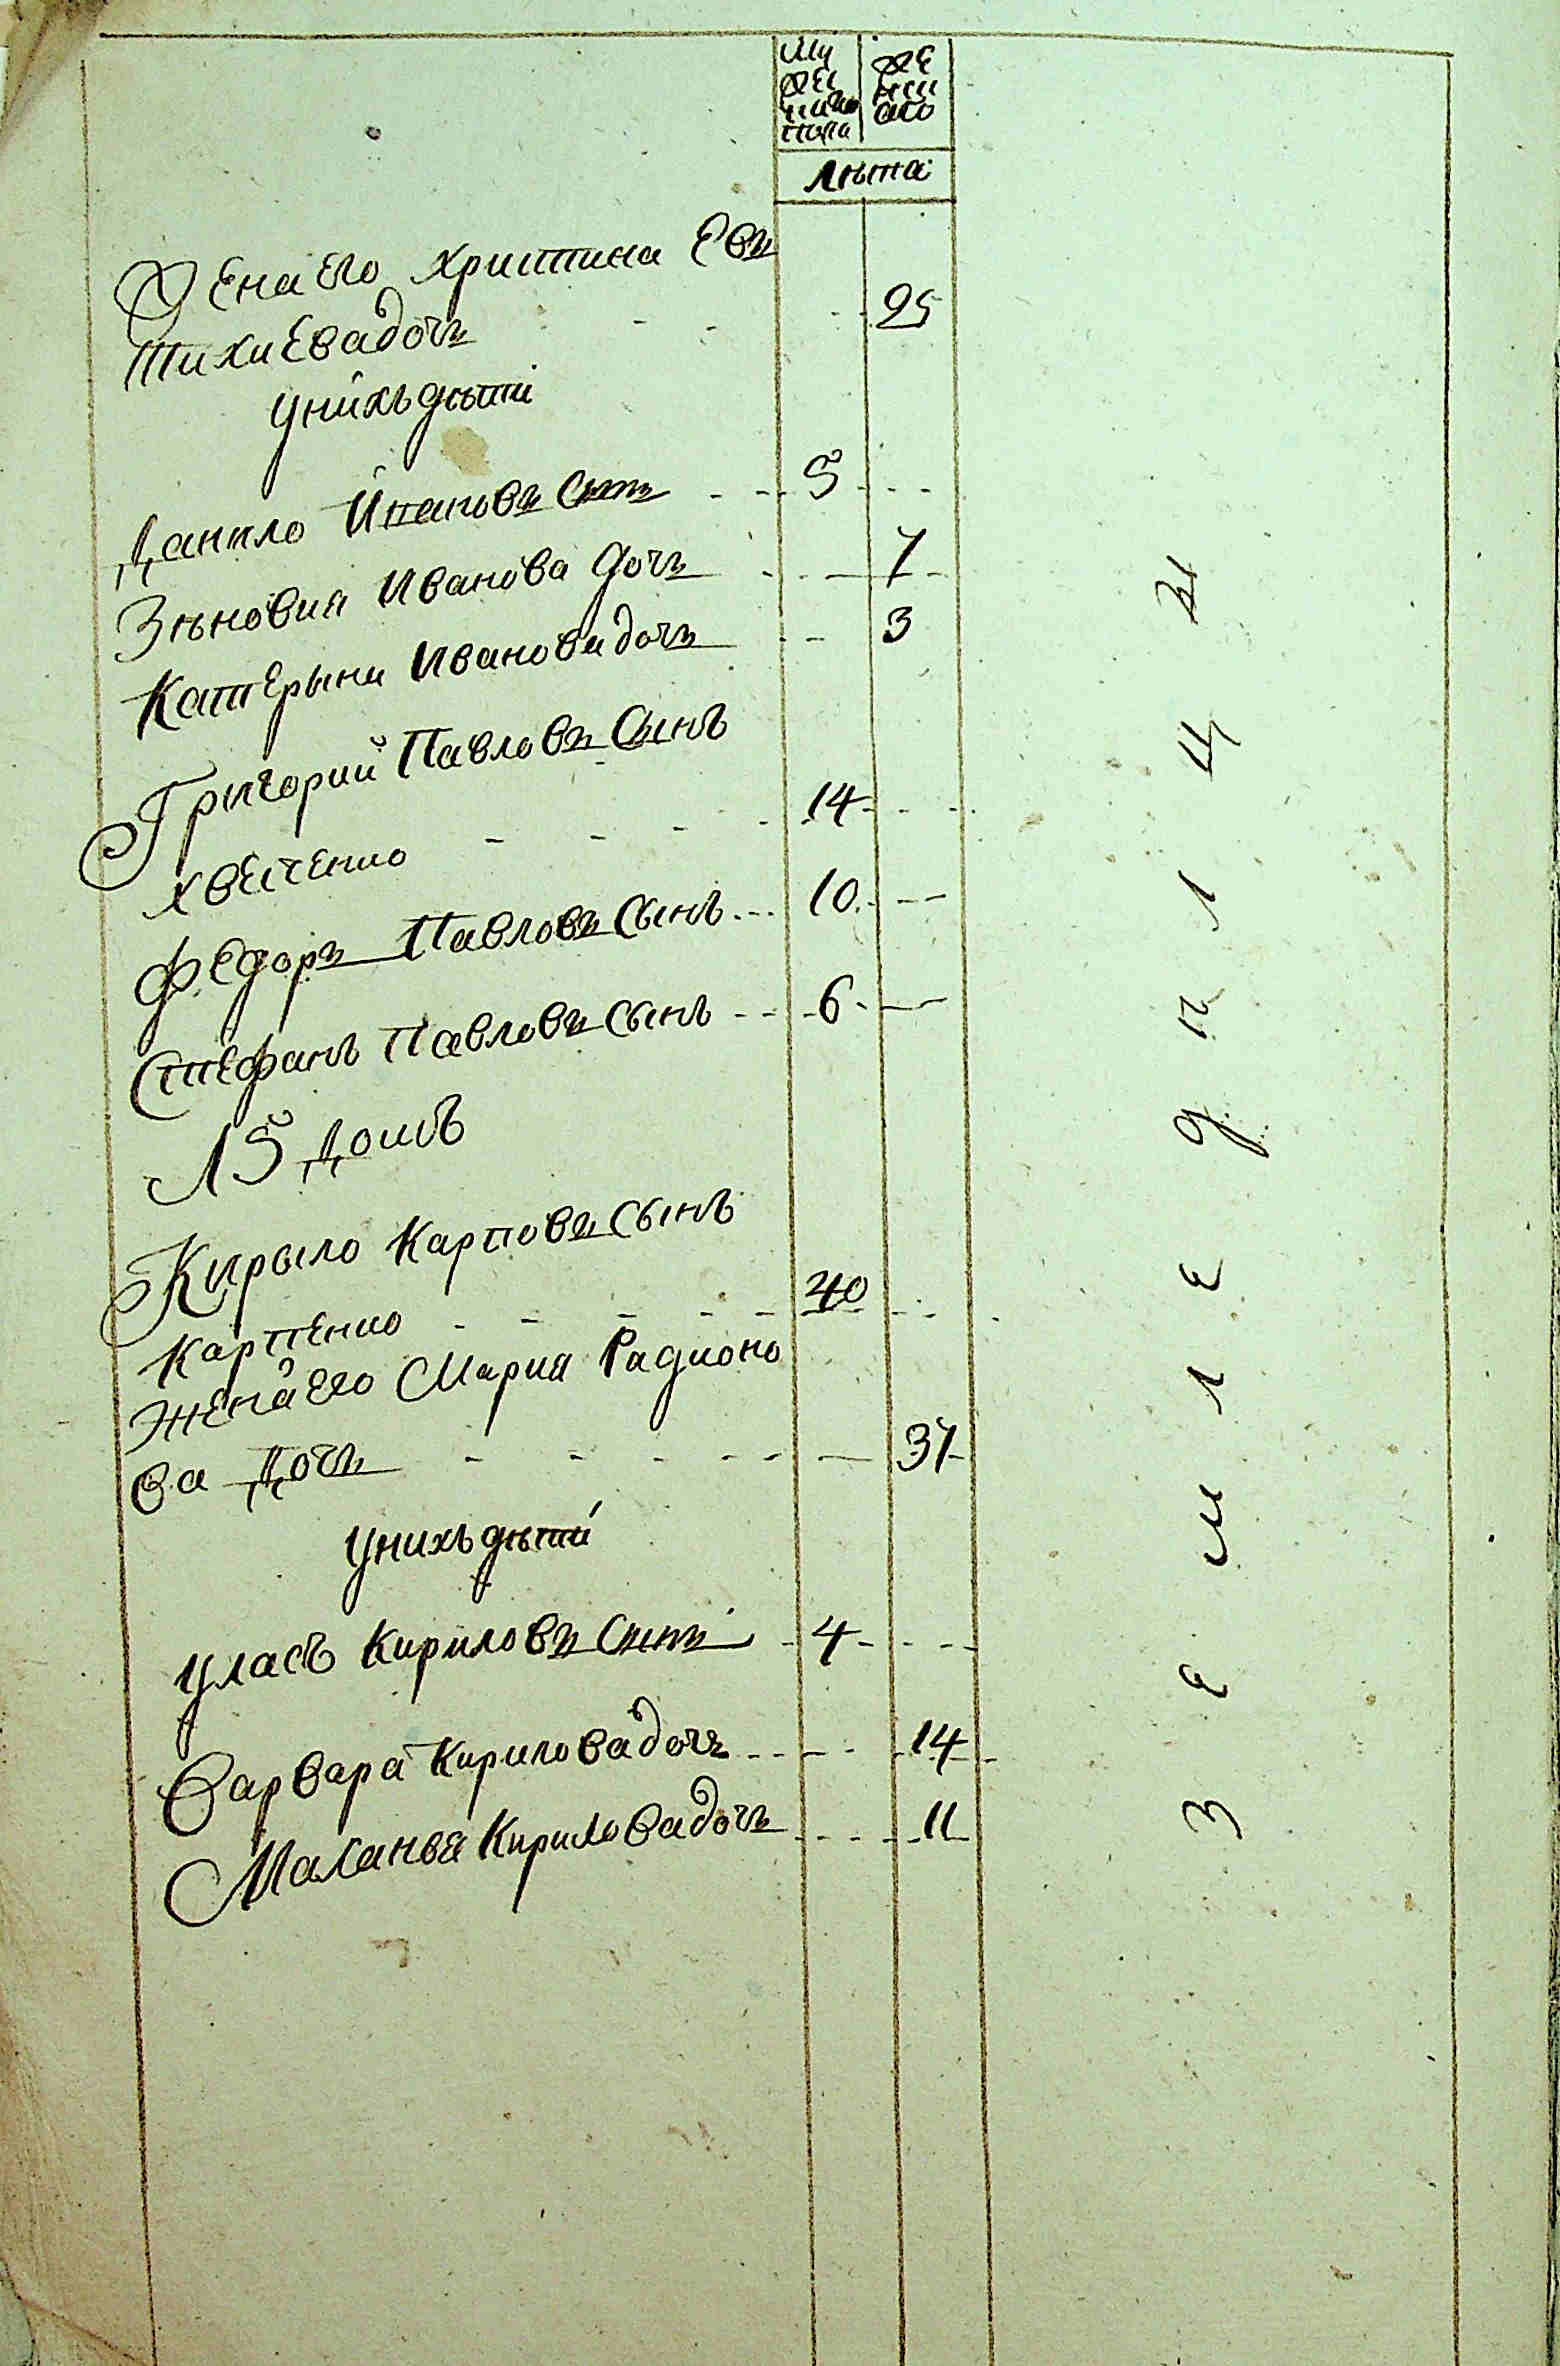 му же
жес нис
кого аго
пола
лѣта
Жена его Христина Евъ
тихиева дочъ 25
у нихъ дѣти
Данило Ивановъ сынъ 5
Зѣновия Иванова дочъ 7
Катерына Иванова дочъ 3
Григорий Павловъ сынъ
14
Федоръ Павловъ сынъ 10
Стефанъ Павловъ сынъ 6
домъ
Кирыло Карповъ сынъ
Карпенко 40
Жена его Мария Радионо
ва дочъ 37
у нихъ дѣти
Уласъ Кириловъ сынъ 4
Варвара Кирилова дочъ 14
Маланья Кирилова дочъ 11
земледѣлцы